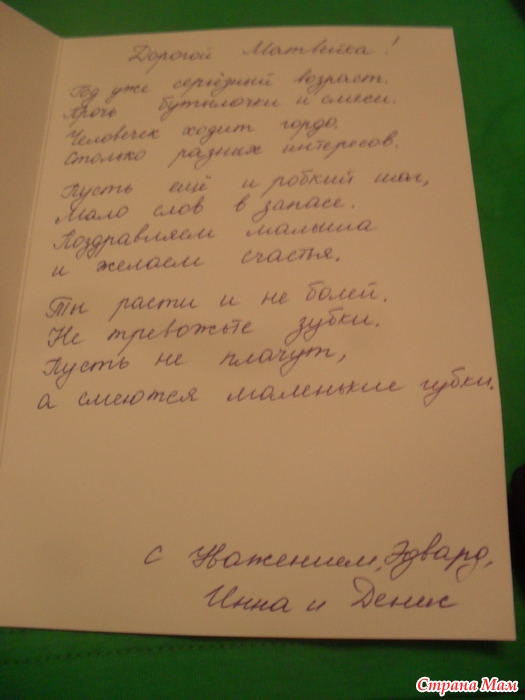 Дорогой Матвейка!
Год уже серьёзний возраст.
Прочь бутылочки и смеси.
Человечек ходит гордо.
Столько разных интересов.
Пусть ещё и робкий шаг,
Мало слов в запасе.
Поздравляем малыша
и желаем счастья.
Ты расти и не болей.
Не тревожьте зубки.
Пусть не плачут,
а смеются маленькие губки.
С Уважением, Эдвард,
Инна и Денис
Страна Мам